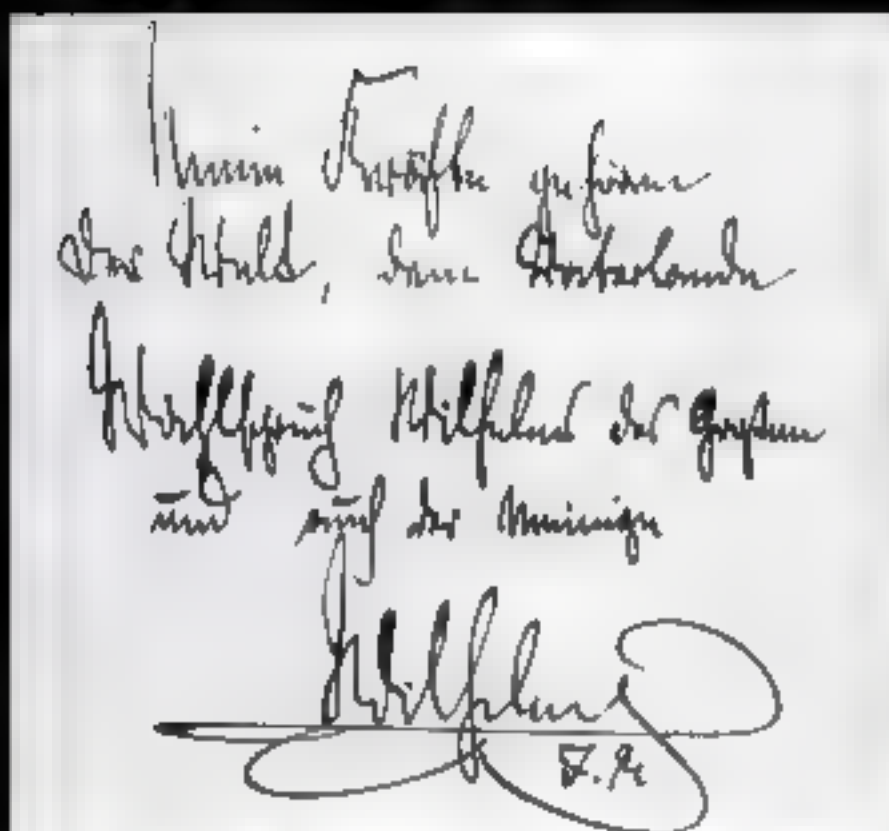 Meine Kräfte gehören
der Welt, dem Vaterlande
Wahlspruch Wilhelms des Großen
und auch der Meinige
Wilhelm
I.R.